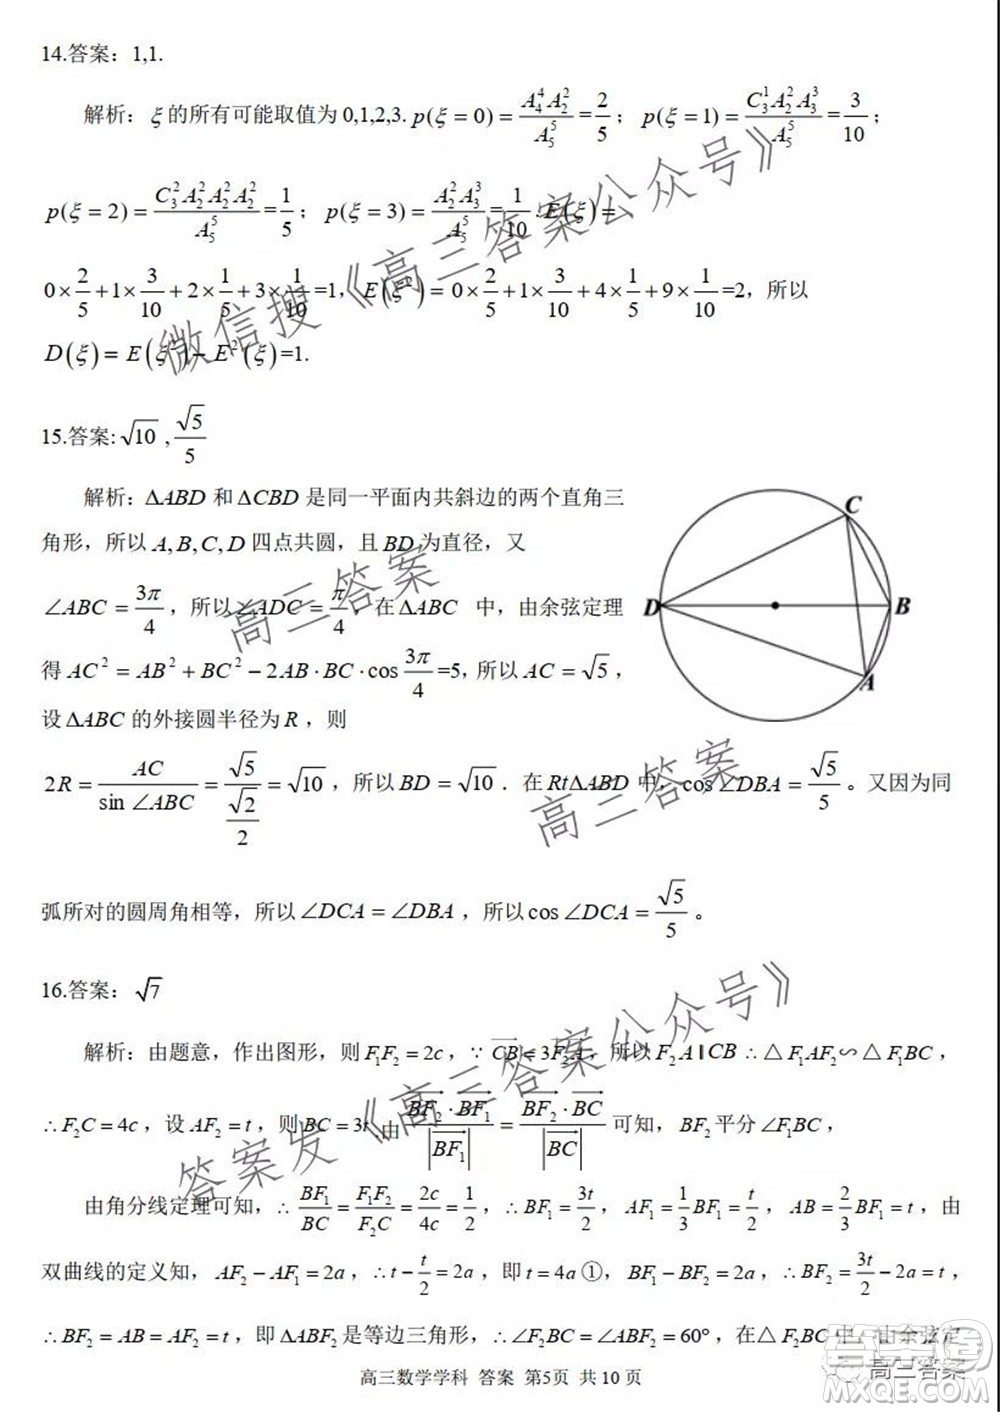 14.答案：1,1.
解析：ξ的所有可能取值为 0,1,2,3. p(ξ=0)=\frac{A_4^4 A_2^2}{A_5^5}=\frac{2}{5}；p(ξ=1)=\frac{C_3^1 A_2^2 A_3^3}{A_5^5}=\frac{3}{10}；
p(ξ=2)=\frac{C_3^2 A_2^2 A_2^2 A_2^2}{A_5^5}=\frac{1}{5}；p(ξ=3)=\frac{A_2^2 A_3^3}{A_5^5}=\frac{1}{10}.E(ξ)=
0×\frac{2}{5}+1×\frac{3}{10}+2×\frac{1}{5}+3×\frac{1}{10}=1，E(ξ^2)=0×\frac{2}{5}+1×\frac{3}{10}+4×\frac{1}{5}+9×\frac{1}{10}=2，所以
D(ξ)=E(ξ^2)-E^2(ξ)=1.
15.答案:\sqrt{10},\frac{\sqrt{5}}{5}
解析：ΔABD和ΔCBD是同一平面内共斜边的两个直角三
角形，所以A,B,C,D四点共圆，且BD为直径，又
∠ABC=\frac{3π}{4}，所以∠ADC=\frac{π}{4}，在ΔABC 中，由余弦定理
得AC^2=AB^2+BC^2-2AB·BC·cos\frac{3π}{4}=5，所以AC=\sqrt{5}，
设ΔABC的外接圆半径为R，则
2R=\frac{AC}{sin∠ABC}=\frac{\sqrt{5}}{\frac{\sqrt{2}}{2}}=\sqrt{10}，所以BD=\sqrt{10}．在RtΔABD中，cos∠DBA=\frac{\sqrt{5}}{5}。又因为同
弧所对的圆周角相等，所以∠DCA=∠DBA，所以cos∠DCA=\frac{\sqrt{5}}{5}。
C
D
B
A
16.答案：\sqrt{7}
解析：由题意，作出图形，则F_1F_2=2c，∵\overrightarrow{CB}=3\overrightarrow{F_2A}，所以F_2A∥CB∴△F_1AF_2∽△F_1BC，
∴F_2C=4c，设AF_2=t，则BC=3t由\frac{\overrightarrow{BF_2}·\overrightarrow{BF_1}}{|\overrightarrow{BF_1}|}=\frac{\overrightarrow{BF_2}·\overrightarrow{BC}}{|\overrightarrow{BC}|}可知，BF_2平分∠F_1BC，
由角分线定理可知，∴\frac{BF_1}{BC}=\frac{F_1F_2}{F_2C}=\frac{2c}{4c}=\frac{1}{2}，∴BF_1=\frac{3t}{2}，AF_1=\frac{1}{3}BF_1=\frac{t}{2}，AB=\frac{2}{3}BF_1=t，由
双曲线的定义知，AF_2-AF_1=2a，∴t-\frac{t}{2}=2a，即t=4a①，BF_1-BF_2=2a，∴BF_2=\frac{3t}{2}-2a=t，
∴BF_2=AB=AF_2=t，即ΔABF_2是等边三角形，∴∠F_2BC=∠ABF_2=60°，在△F_2BC中，由余弦定
高三数学学科 答案 第5页 共10页
微信搜《高三答案公众号》
高三答案
高三答案
答案发《高三答案公众号》
高三答案
答案圈
MXQE.COM